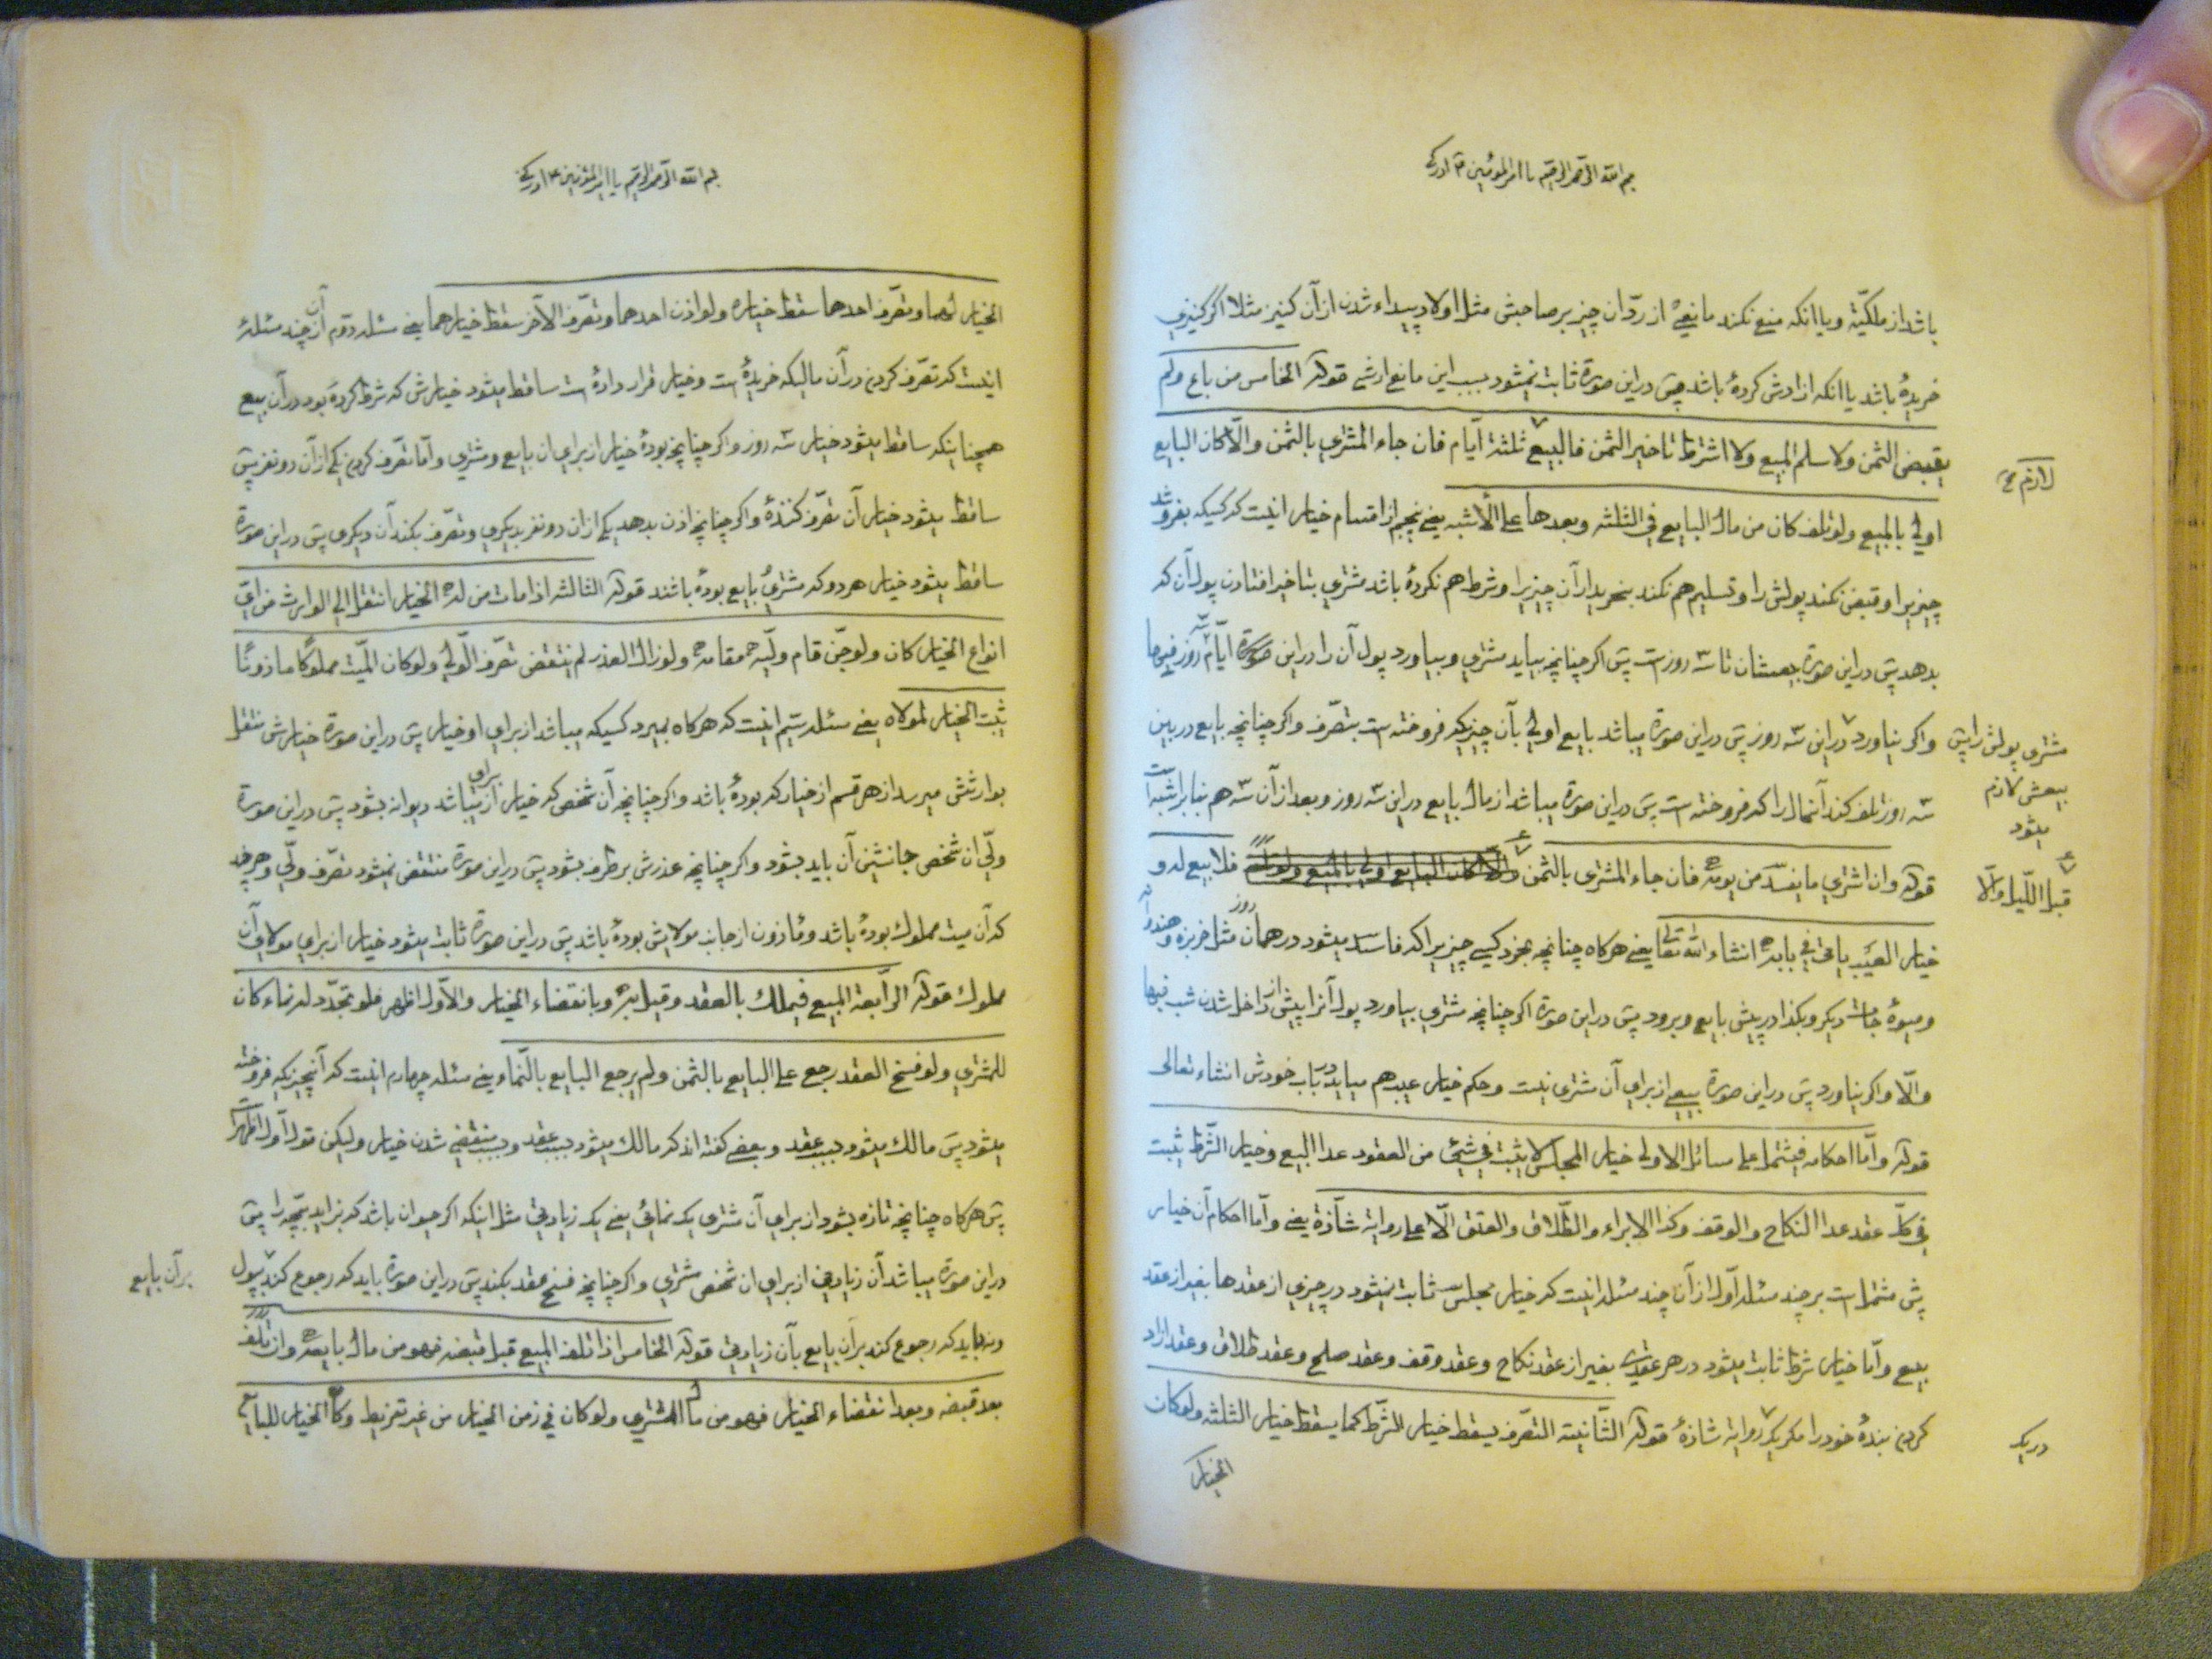 بسم الله الرحمن الرحیم یا امیر المؤمنین ع ادرکنی
باشد از ملکیّة و یا انکه منع نکند مانعی از ردّ ان چیز بر صاحبش مثل اولاد پیداء شدن از آن کنیز مثلا اگر کنیزی
خریدۀ باشد یا انکه ازادش کردۀ باشد پس در این صورة ثابت نمیشود بسبب این مانع ارشی قوله الخامس من باع ولم
یقبض الثمن ولا سلم المبیع ولا اشترط تاخیر الثمن فالبیع ثلثة ایّام فان جاء المشتری بالثمن والّا کان البایع
لازم
اولی بالمبیع ولو تلف کان من مال البایع فی الثلثه وبعدها علی الأشبه یعنی پنجم از اقسام خیار اینست که کسیکه بفروشد
چیزیرا و قبض نکند پولش را و تسلیم هم نکند بخریدار آن چیز را و شرط هم نکردۀ باشد مشتری بتاخیر افتادن پول آن که
بدهد پس در این صورة بیعشان تا سه روزست پس اکر چنانچه بیاید مشتری و بیاورد پول آن را در این صورة ایّام سه روز فبها
واکر نیاورد در این سه روز پس در این صورة میباشد بایع اولی بآن چیزیکه فروخته ست بتصّرف واکر چنانچه بایع در بین
مشتری پولش را پس
بیعش لازم
میشود
سه روز تلف کند آنمال را که فروخته ست پس در این صورة میباشد از مال بایع در این سه روز و بعد از آن سه هم بنابر اشبه است
قوله وان اشتری ما یفسد من یومه فان جاء المشتری بالثمن والّا کان البایع اولی بالمبیع ولو تلف فلا بیع له و
قبل اللّیل والّا
خیار العیب یاتی فی بابه انشاء الله تعالی یعنی هرکاه چنانچه بخرد کسی چیزیرا که فاسد میشود در همان روز مثل خربزه و هندوانه
و میوۀ جات دیکر و بکذارد پیش بایع و برود پس در این صورة اکر چنانچه مشتری بیاورد پول آنرا پیش از داخل شدن شب فبها
والّا واکر نیاورد پس در این صورة بیعی از برای آن مشتری نیست وحکم خیار عیب هم میاید در باب خودش انشاء تعالی
قوله وامّا احکامه فیشتمل علی مسائل الاولی خیار المجلس لا یثبت فی شیئ من العقود عدا البیع وخیار الشّرط یثبت
فی کلّ عقد عدا النکاح والوقف وکذا الابراء والطّلاق والعتق الّا علی روایة شاّذة یعنی وامّا احکام آن خیار
پس مشتمل است بر چند مسئله اوّل از آن چند مسئله اینست که خیار مجلس ثابت نمیشود در چیزی از عقدها بغیر از عقد
بیع وامّا خیار شرط ثابت میشود در هر عقدی بغیر از عقد نکاح و عقد وقف و عقد صلح و عقد طلاق و عقد ازاد
کردن بندۀ خود را مکر یک روایة شاذۀ قوله الثّانیة التصّرف یسقط خیار الشّرط کما یسقط خیار الثلثه ولو کان
در یک
الخیار
بسم الله الرحمن الرحیم یا امیر المؤمنین ع ادرکنی
الخیار لهما وتصّرف احدهما سقط خیاره ولو اذن احدهما وتصّرف الآخر سقط خیارهما یعنی مسئله دوّم از آن چند مسئلۀ
اینست که تصّرف کردن در آن مالیکه خریدۀ است و خیار قرار دادۀ است ساقط میشود خیارش که شرط کردۀ بود در آن بیع
همچنا اینکه ساقط میشود خیار سه روز واکر چنانچه بودۀ خیار از برای ان بایع و مشتری وامّا تصّرف کردن یکی از آن دو نفر پس
ساقط میشود خیار آن تصّرف کنندۀ واکر چنانچه اذن بدهد یکی از ان دو نفر بدیکری و تصّرف بکند آن دیکری پس در این صورة
ساقط میشود خیار هر دو که مشتری و بایع بودۀ باشند قوله الثالثه اذا مات من له الخیار انتقل الی الوارث من ایّ
انواع الخیار کان ولو جنّ قام ولیّه مقامه ولو زال العذر لم ینتقض تصّرف الولّی ولو کان المیّت مملوکًا ماذونًا
ثبت الخیار لمولاه یعنی مسئله سیّم اینست که هرکاه بمیرد کسیکه میباشد از برای او خیار پس در این صورة خیارش منتقل
بوارثش میرسد از هر قسم از خیار که بودۀ باشد واکر چنانچه آن شخص که خیار از برای میباشد دیوانه بشود پس در این صورة
ولّی ان شخص جانشین آن باید بشود واکر چنانچه عذرش برطرف بشود پس در این صورة منتقض نمیشود تصّرف ولّی وهر چند
که آن میت مملوک بودۀ باشد و ماذون از جانب مولایش بودۀ باشد پس در این صورة ثابت میشود خیار از برای مولای آن
مملوک قوله الرّابعة المبیع فیملک بالعقد وقیل به وبانقضاء الخیار والاّول اظهر فلو تجدّد له نماء کان
للمشتری ولو فسخ العقد رجع علی البایع بالثمن ولم یرجع البایع بالنّماء یعنی مسئله چهارم اینست که آنچیزیکه فروخته
میشود پس مالک میشود بسبب عقد و بعضی کفته اند که مالک میشود بسبب عقد و بسبب منقضی شدن خیار ولیکن قول اوّل اظهر
پس هرکاه چنانچه تازه بشود از برای آن مشتری یک نمائی یعنی یک زیادتی مثل اینکه اکر حیوان باشد که بزاید بچّه را پس
در این صورة میباشد آن زیادتی از برای ان شخص مشتری واکر چنانچه فسخ عقد بکند پس در این صورة باید که رجوع کند بپول
بر آن بایع
و نباید که رجوع کند بر آن بایع بآن زیادتی قوله الخامس اذا تلف المبیع قبل قبضه فهو من مال بایعه وان تلف
بعد قبضه وبعد انقضاء الخیار فهو من مال المشتری ولو کان فی زمن الخیار من غیر تفریط وکان الخیار للبایع